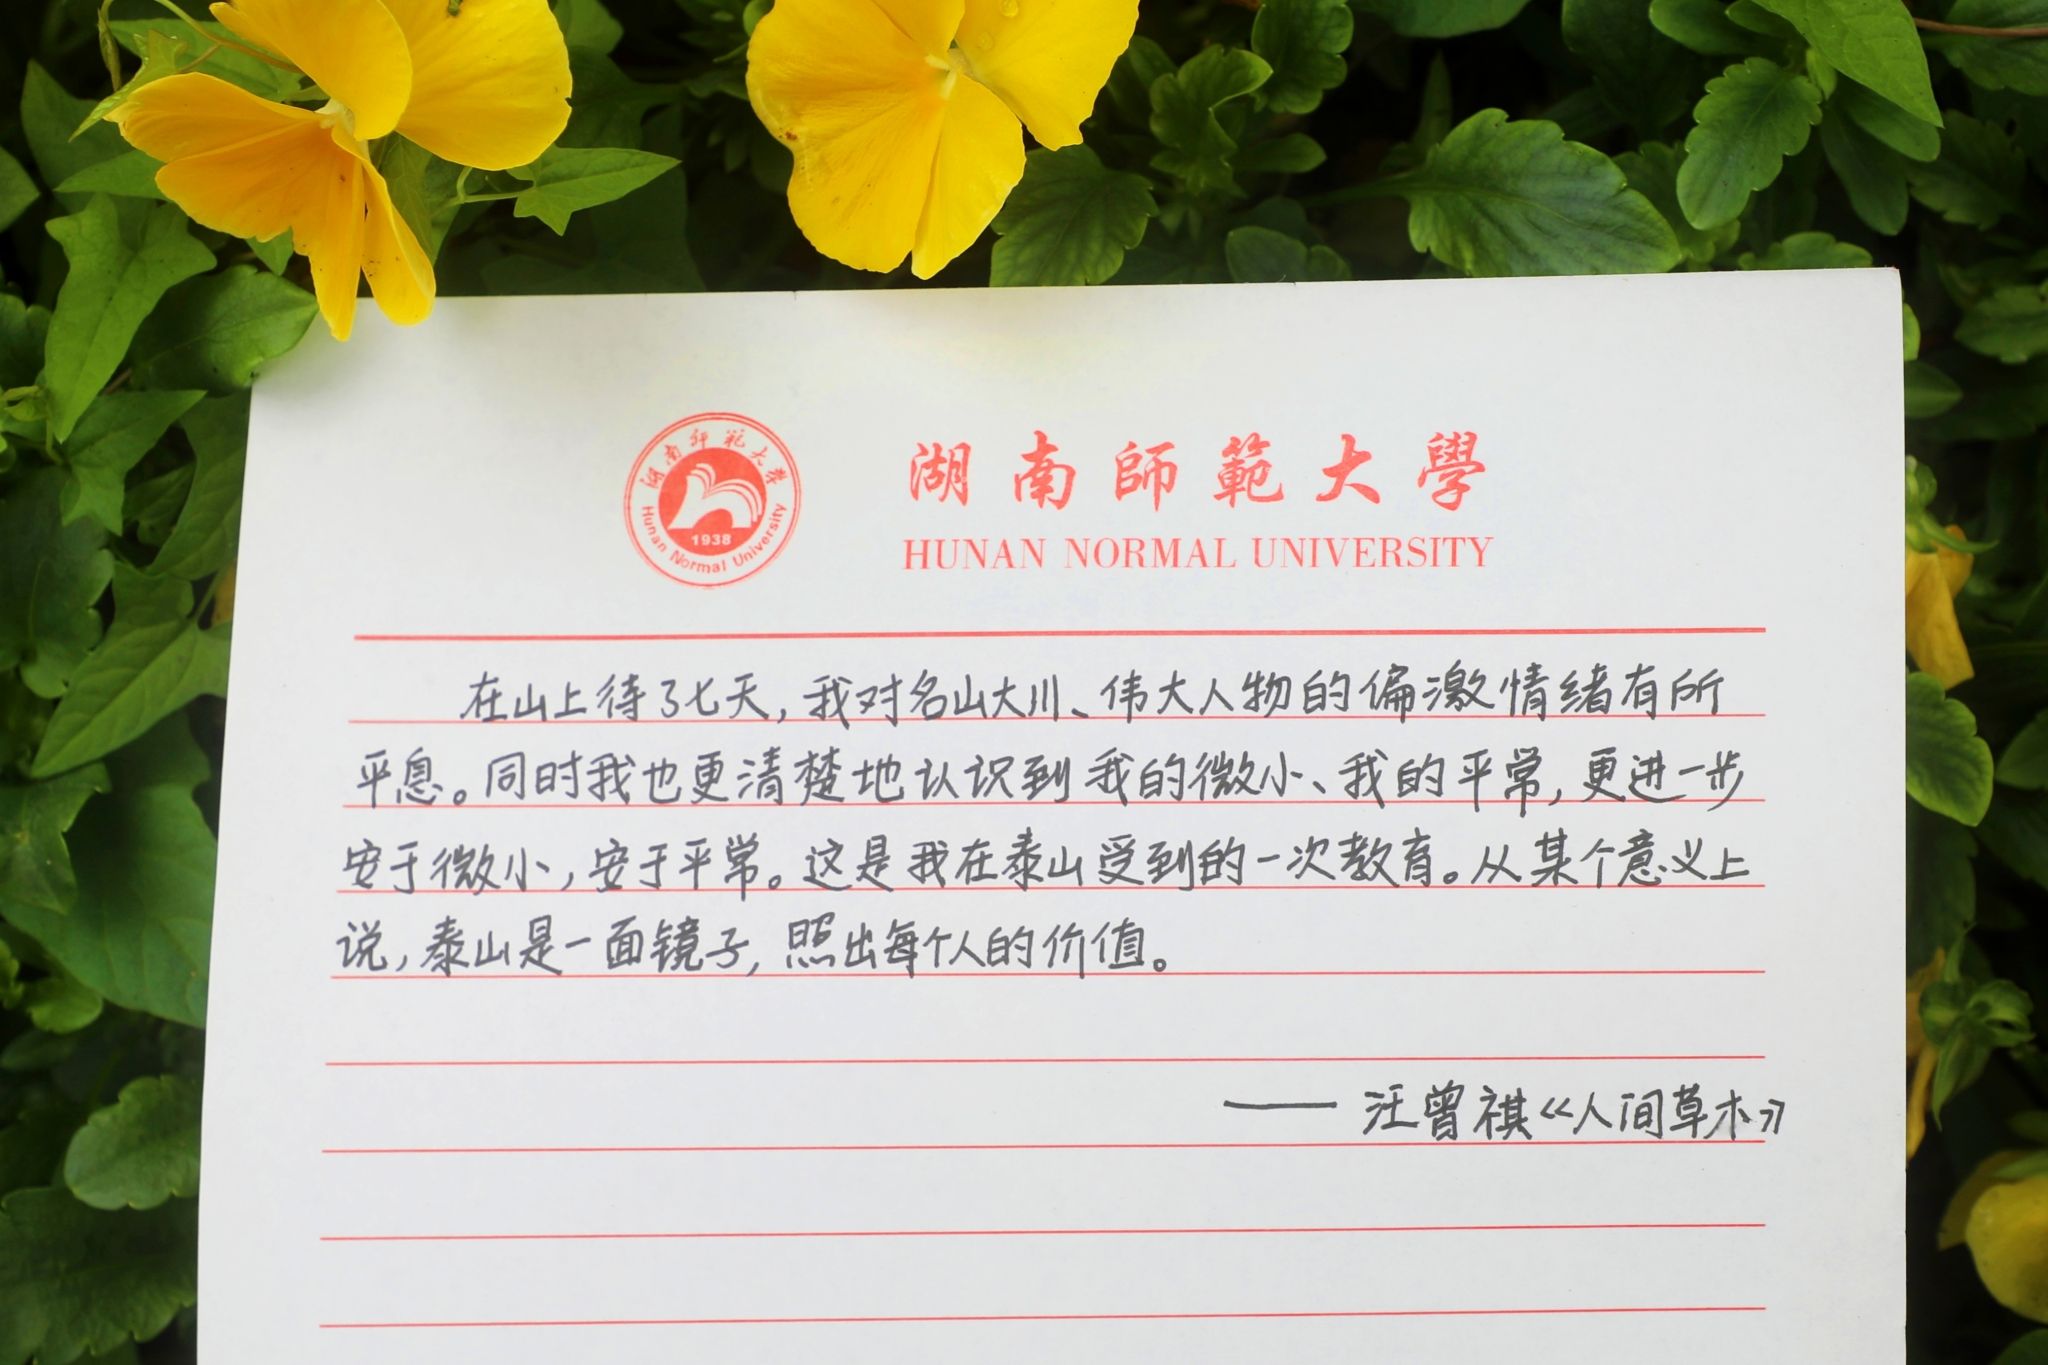 湖南师范大学
Hunan Normal University
1938
湖南師範大學
HUNAN NORMAL UNIVERSITY
在山上待了七天，我对名山大川、伟大人物的偏激情绪有所
平息。同时我也更清楚地认识到我的微小、我的平常，更进一步
安于微小，安于平常。这是我在泰山受到的一次教育。从某个意义上
说，泰山是一面镜子，照出每个人的价值。
——汪曾祺《人间草木》